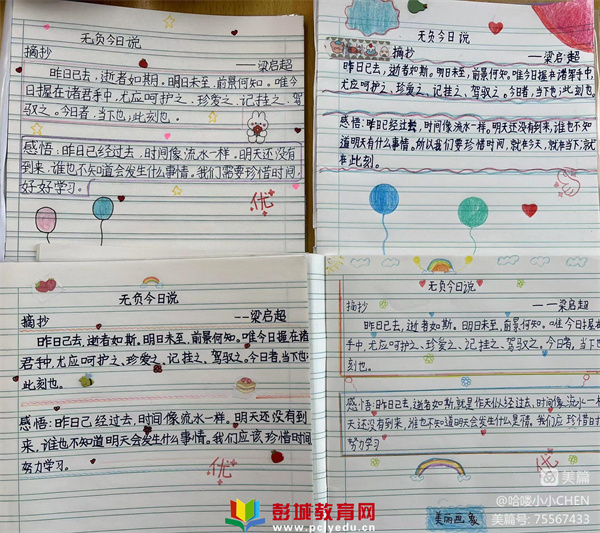 无负今日说
摘抄
——梁启超
昨日已去,逝者如斯,明日未至,前景何知。唯今
日握在诸君手中,尤应呵护之、珍爱之、记挂之、驾
驭之。今日者,当下也;此刻也。
感悟:昨日已经过去,时间像流水一样。明天还没有
到来,谁也不知道会发生什么事情。我们需要珍惜时间,
好好学习。
优
无负今日说
摘抄
——梁启超
昨日已去,逝者如斯。明日未至,前景何知。唯今日握在诸君手中,
尤应呵护之、珍爱之、记挂之、驾驭之。今日者,当下也;此刻也。
感悟:昨日已经过去,时间像流水一样。明天还没有到来,谁也不知
道明天有什么事情。所以我们要珍惜时间,就在今天,就在当下,就
在此刻。
无负今日说
摘抄
——梁启超
昨日已去,逝者如斯。明日未至,前景何知。唯今日握在诸
君手中,尤应呵护之、珍爱之、记挂之、驾驭之。今日者,当下也;
此刻也。
感悟:昨日已经过去,时间像流水一样。明天还没有到
来,谁也不知道明天会发生什么事情。我们应该珍惜时间
努力学习。
优
无负今日说
摘抄
——梁启超
昨日已去,逝者如斯。明日未至,前景何知。唯今日握在诸
手中,尤应呵护之、珍爱之、记挂之、驾驭之。今日者,当下也;
刻也。
感悟:昨日已去,逝者如斯,就是昨天已经过去,时间像流水一样
天还没有到来,谁也不知道明天会发生什么事情。我们应珍惜时
努力学习
优
美丽西象
美篇
@哈喽小小CHEN
美篇号:75567433
彭城教育网
www.pcjyedu.cn